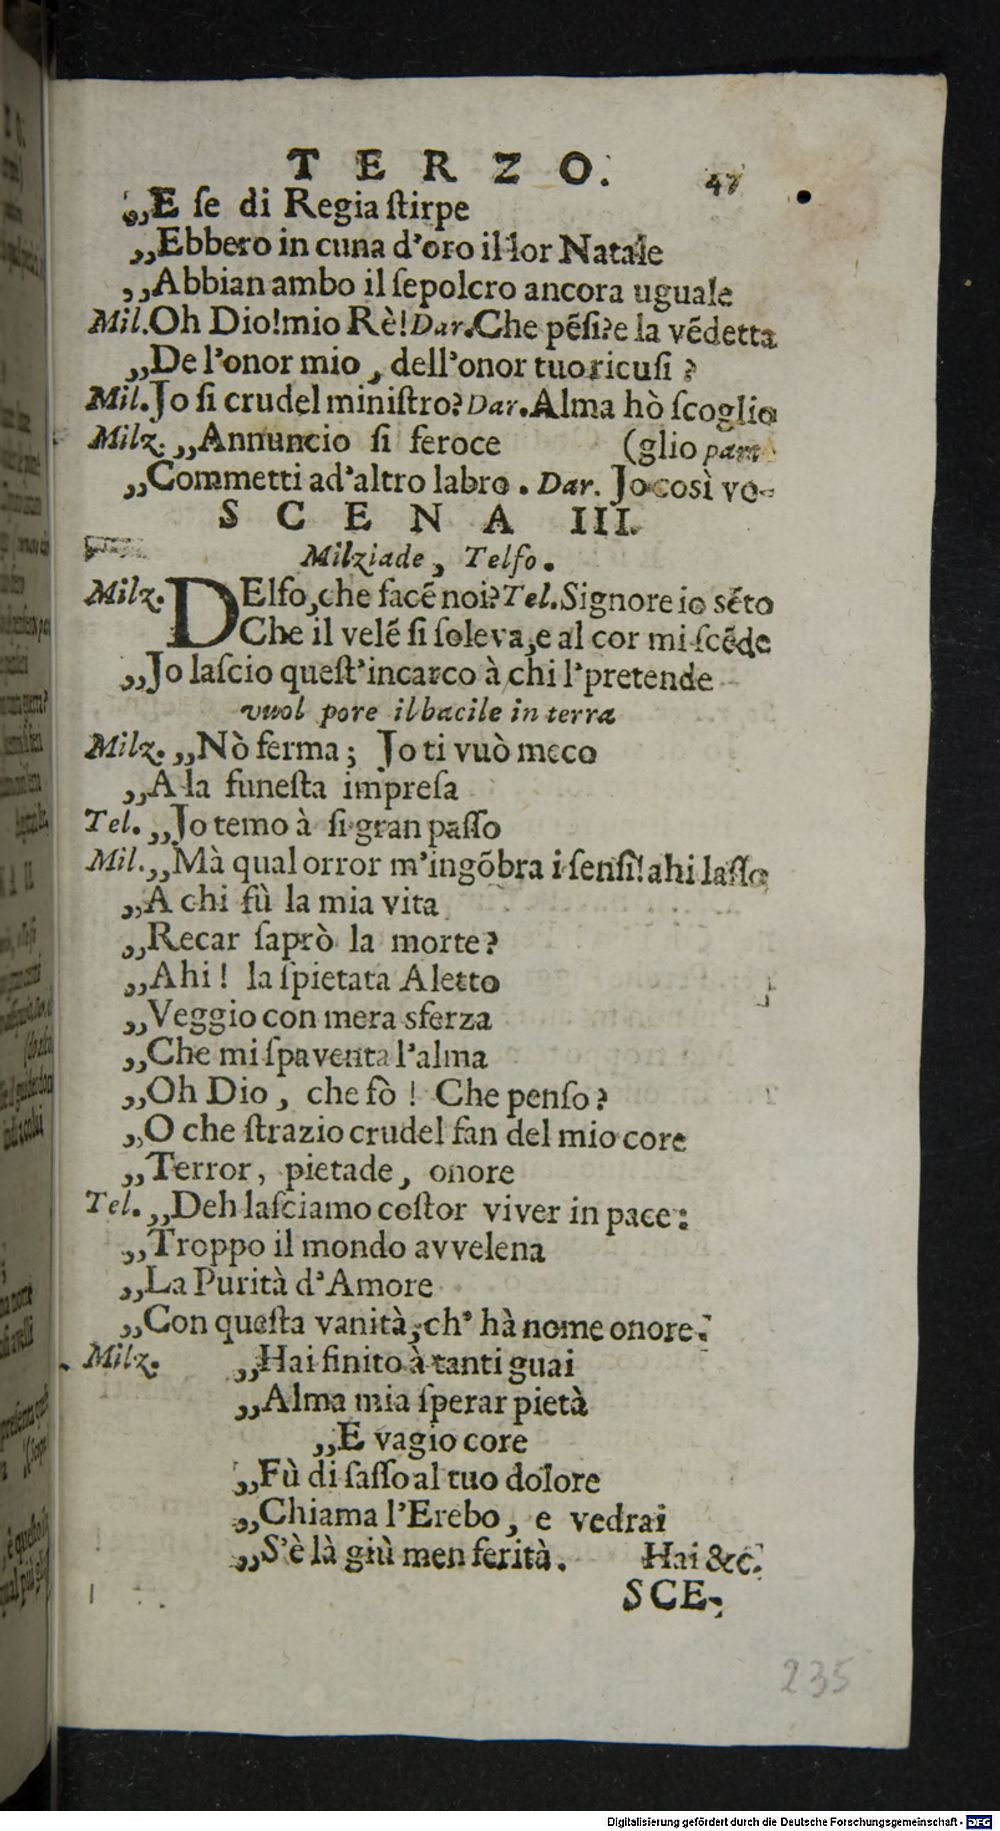 TERZO. 47
„E ſe di Regia ſtirpe
„Ebbero in cuna d'oro il lor Natale
„Abbian ambo il ſepolcro ancora uguale
Mil. Oh Dio! mio Rè! Dar. Che pẽſi? e la vẽdetta
„De l'onor mio, dell'onor tuo ricuſi?
Mil. Jo ſi crudel miniſtro? Dar. Alma hò ſcoglio
Milz. „Annuncio ſi feroce (glio par
„Commetti ad'altro labro. Dar. Jo così vo-
SCENA III.
Milziade, Telfo.
Milz. DElfo, che facẽ noi? Tel. Signore io sẽto
Che il velẽ ſi ſoleva, e al cor mi ſcẽde
„Jo laſcio queſt'incarco à chi l'pretende
vuol pore il bacile in terra
Milz. „Nò ferma; Jo ti vuò meco
„A la funeſta impreſa
Tel. „Jo temo à ſi gran paſſo
Mil. „Mà qual orror m'ingõbra i ſenſi! ahi laſſo
„A chi fù la mia vita
„Recar ſaprò la morte?
„Ahi! la ſpietata Aletto
„Veggio con mera sferza
„Che mi ſpaventa l'alma
„Oh Dio, che fò! Che penſo?
„O che ſtrazio crudel fan del mio core
„Terror, pietade, onore
Tel. „Deh laſciamo coſtor viver in pace:
„Troppo il mondo avvelena
„La Purità d'Amore
„Con queſta vanità, ch' hà nome onore.
Milz. „Hai finito à tanti guai
„Alma mia ſperar pietà
„E vagio core
„Fù di ſaſſo al tuo dolore
„Chiama l'Erebo, e vedrai
„S'è là giù men ferità. Hai &c.
SCE-
235
Digitalisierung gefördert durch die Deutsche Forschungsgemeinschaft - DFG